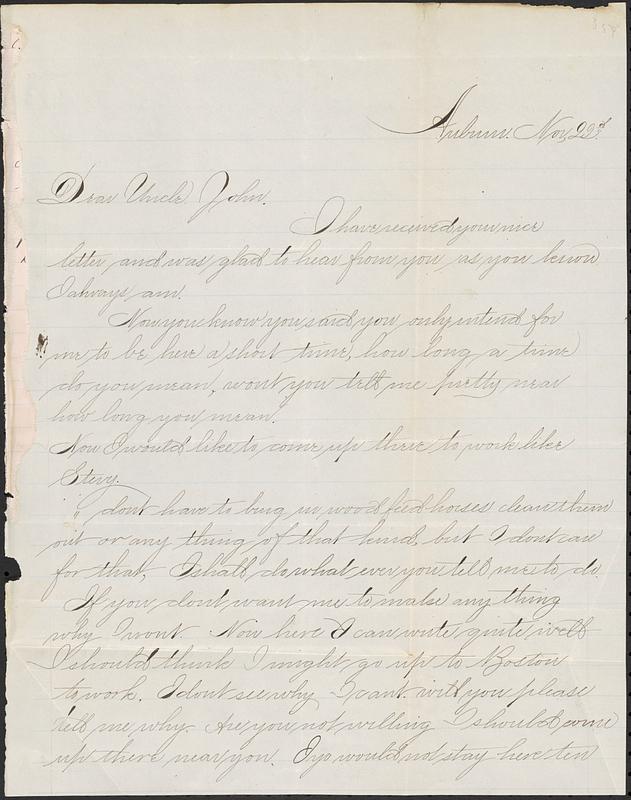 Auburn. Nov, 22d
Dear Uncle John.
I have received your nice
letter and was glad to hear from you as you know
I always am.
Now you know you said you only intend for
me to be here a short time, how long a time
do you mean, wont you tell me pretty near
how long you mean.
Now I would like to come up there to work like
Stevy.
dont have to bring in wood feed horses clean them
out or any thing of that kind, but I dont care
for that, I shall do what ever you tell me to do.
If you dont want me to make any thing
why I wont. Now here I can write quite well
I should think I might go up to Boston
to work. I dont see why I cant. will you please
tell me why. Are you not willing I should come
up there near you. would not stay here ten